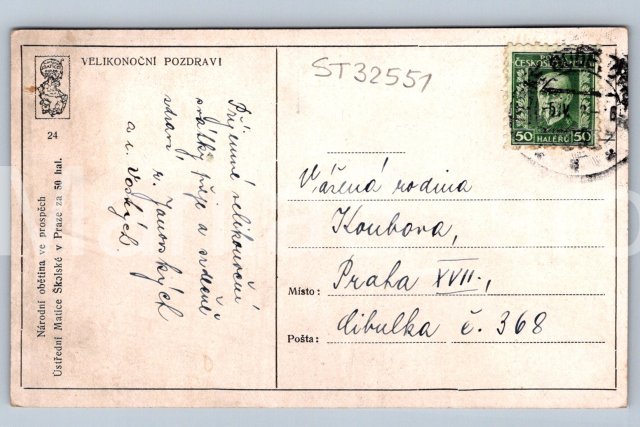 VELIKONOČNÍ POZDRAV!
24
Národní obětina ve prospěch
Ústřední Matice Školské v Praze za 50 hal.
Příjemné velikonoční
svátky přeje a srdečně
zdraví
r. Janovských
a r. Voských.
ST32551
ČESKOSLOV
50 HALÉŘŮ 50
Vážená rodina
Koubova,
Místo: Praha XVII.,
Pošta: Cibulka č. 368